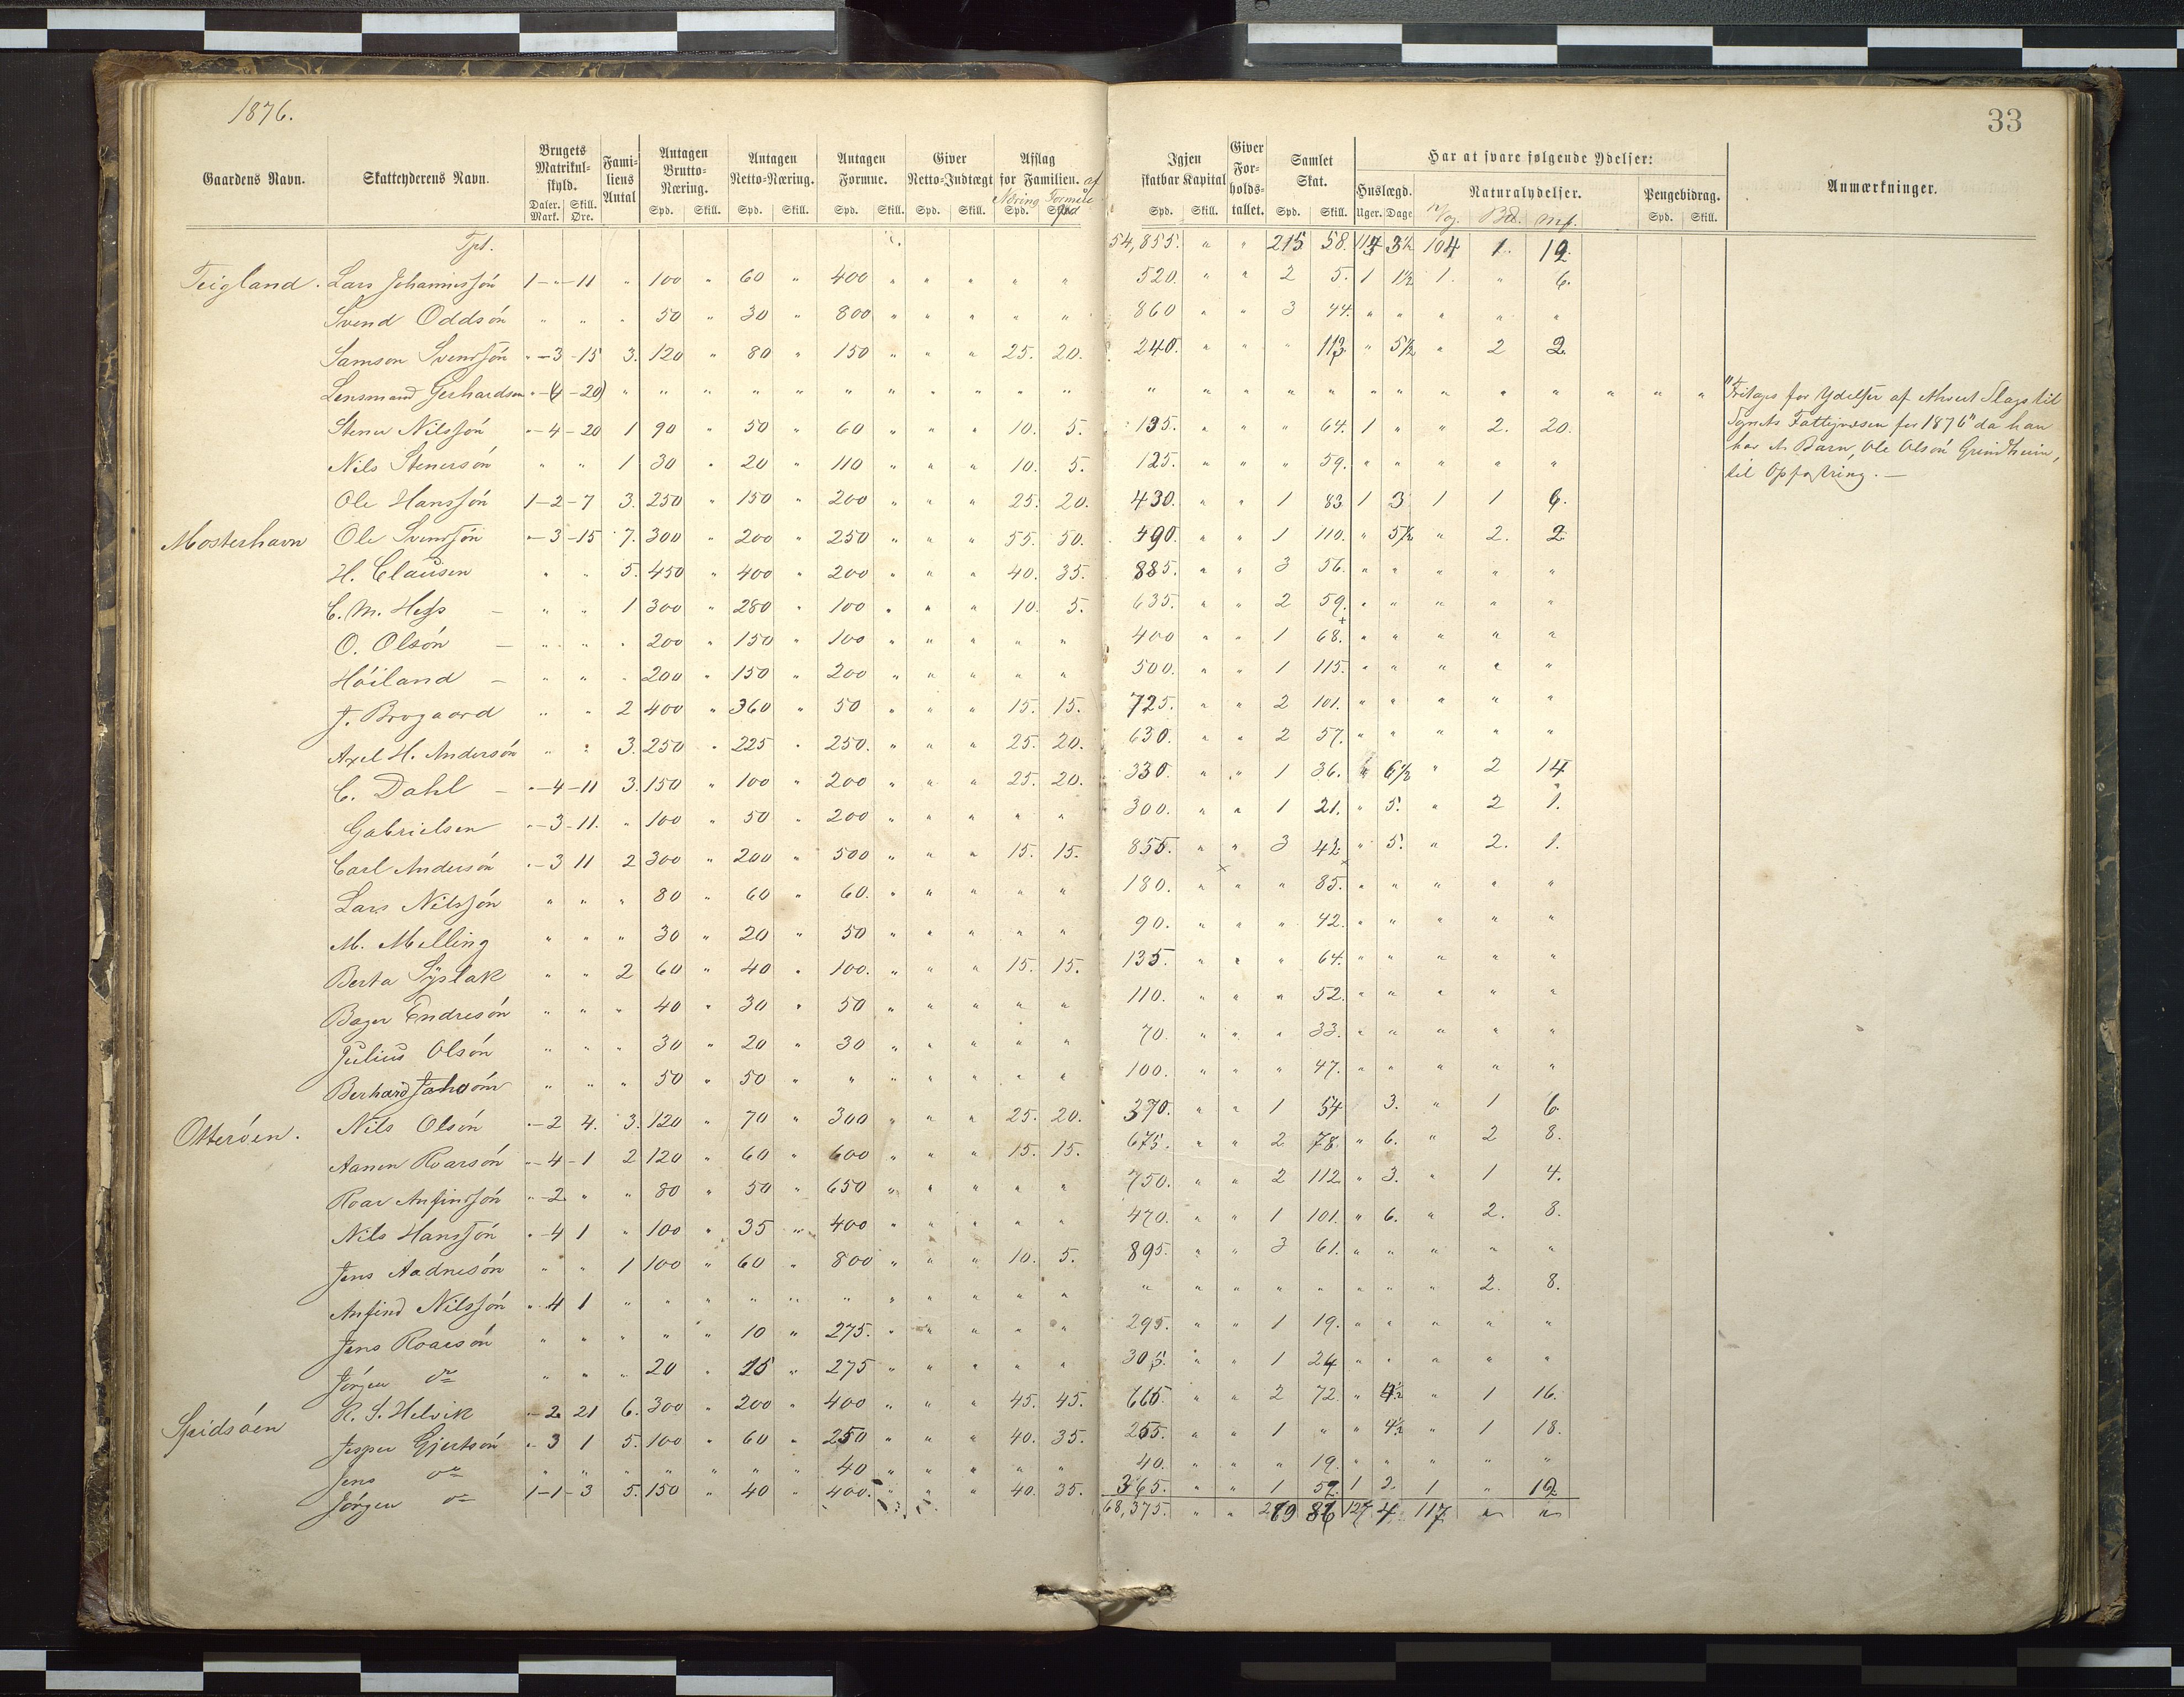 1876.
33
Gaardens Navn. Skatteyderens Navn. Brugets Matrikul-skyld. Daler. Mark. Skill. Øre. Fami-liens Antal Antagen Brutto-Næring. Spd. Skill. Antagen Netto-Næring. Spd. Skill. Antagen Formue. Spd. Skill. Giver Netto-Indtægt Spd. Skill. Afslag for Familien. af Næring Formue Spd. Spd Igjen skatbar Kapital Spd. Skill. Giver For-holds-tallet. Samlet Skat. Spd. Skill. Har at svare følgende Ydelser: Huslægd. Uger. Dage Naturalydelser. Vog. Bd. Mk. Pengebidrag. Spd. Skill. Anmærkninger.
Tpt. 54,855. " " 215 58. 117 3½ 104 1. 19.
Teigland. Lars Johannessön 1 - " - 11 " 100 " 60 " 400 " " " " " 520. " " 2 5. 1 1½ 1. " 6.
Svend Oddsön " " " 50 " 30 " 800 " " " " " 860 " " 3 44. " " " " "
Samson Svendsön " - 3 - 15 3. 120 " 80 " 150 " " " 25. 20. 240. " " " 113. " 5½ " 2 2.
Lensmand Gerhardsen " - (4 - 20) " " " " " " " " " " " " " " " " " " " " " "
Stener Nilssön " - 4 - 20 1 90 " 50 " 60 " " " 10. 5. 135. " " " 64. 1 " " 2. 20.
Nils Stenersön " " 1 30 " 20 " 110 " " " 10. 5. 125. " " " 59. " " " " "
Ole Hanssön 1 - 2 - 7 3. 250 " 150 " 200 " " " 25. 20. 430. " " 1 83 1 3 1 1 6.
Mosterhavn Ole Svendsön " - 3 - 15 7. 300 " 200 " 250 " " " 55. 50. 490. " " 1 110. " 5½ " 2. 2
H. Clausen " " 5. 450 " 400 " 200 " " " 40. 35. 885. " " 3 56. " " " " "
C. M. Hess - " " 1 300 " 280 " 100 " " " 10. 5. 635. " " 2 59. " " " " "
O. Olsön - " " " 200 " 150 " 100 " " " " " 400 " " 1 68. " " " " "
Höiland - " " " 200 " 150 " 200 " " " " " 500. " " 1 115. " " " " "
J. Brogaard " " 2 400 " 360 " 50 " " " 15. 15. 725. " " 2 101. " " " " "
Axel H. Andersön " " 3. 250 " 225 " 250. " " " 25. 20. 630. " " 2 57. " " " " "
C. Dahl - " - 4 - 11 3. 150 " 100 " 200 " " " 25. 20. 330. " " 1 36. " 6½ " 2 14
Gabrielsen " - 3 - 11. " 100 " 50 " 200 " " " " " 300. " " 1 21. " 5. " 2 1.
Carl Andersön " - 3 11 2 300 " 200 " 500 " " " 15. 15. 855. " " 3 42 " 5. " 2. 1.
Lars Nilssön " " " 80 " 60 " 60. " " " " " 180. " " " 85. " " " " "
M. Melling " " " 30 " 20 " 50 " " " " " 90. " " " 42. " " " " "
Berta Syslak " " 2 60 " 40 " 100. " " " 15. 15. 135. " " " 64. " " " " "
Bager Endresön " " " 40 " 30 " 50 " " " " " 110. " " " 52. " " " " "
Julius Olsön " " " 30 " 20 " 30 " " " " " 70. " " " 33. " " " " "
Berhard " " " 50 " 50 " " " " " " " 100. " " " 47. " " " " "
Otteröen. Nils Olsön " - 2 4. 3. 120 " 70 " 300 " " " 25. 20. 370. " " 1 54 3. " 1 6
Aanen Roarsön " - 4 - 1 2 120 " 60 " 600 " " " 15. 15. 675. " " 2 78. " 6. " 2 8.
Roar Anfindsön " - 2 " " 80 " 50 " 650 " " " " " 750. " " 2 112. " 3. " 1 4.
Nils Hanssön " - 4 1 " 100 " 35 " 400 " " " " " 470. " " 1 101. " 6. " 2. 8.
Jens Aadnesön " " 1 100 " 60 " 800 " " " 10. 5. 895. " " 3 61. " " " " "
Anfind Nilssön " 4 1 " " " " " " " " " " " " " " " " " " " 2. 8.
Jens Roarsön " " " " " 10 " 275. " " " " " 295. " " 1 19. " " " " "
Jörgen do " " " 20 " 15 " 275 " " " " " 305. " " 1 24 " " " " "
Spidsöen R. S. Helvik " - 2 21 6. 300 " 200 " 400 " " " 45. 45. 665. " " 2 72. " 4½ " 1 16.
Jesper Gjertsön " 3 1 5. 100 " 60 " 250 " " " 40. 35. 255. " " 1 " " 4½ " 1 18.
Jens do " " " " " " " 40 " " " " " 40. " " " 19. " " " " "
Jörgen do 1 - 1 - 3 5. 150 " 40 " 400. " " " 40. 35. 365. " " 1 52. 1 2. 1 " 12
68,375. " " 269 86 127 4 117 " "
"Fritages for Ydelser af ethvert Slags til
Sognets Fattigvæsen for 1876" da han
har et Barn, Ole Olsön Grindheim,
til Opfostring. -